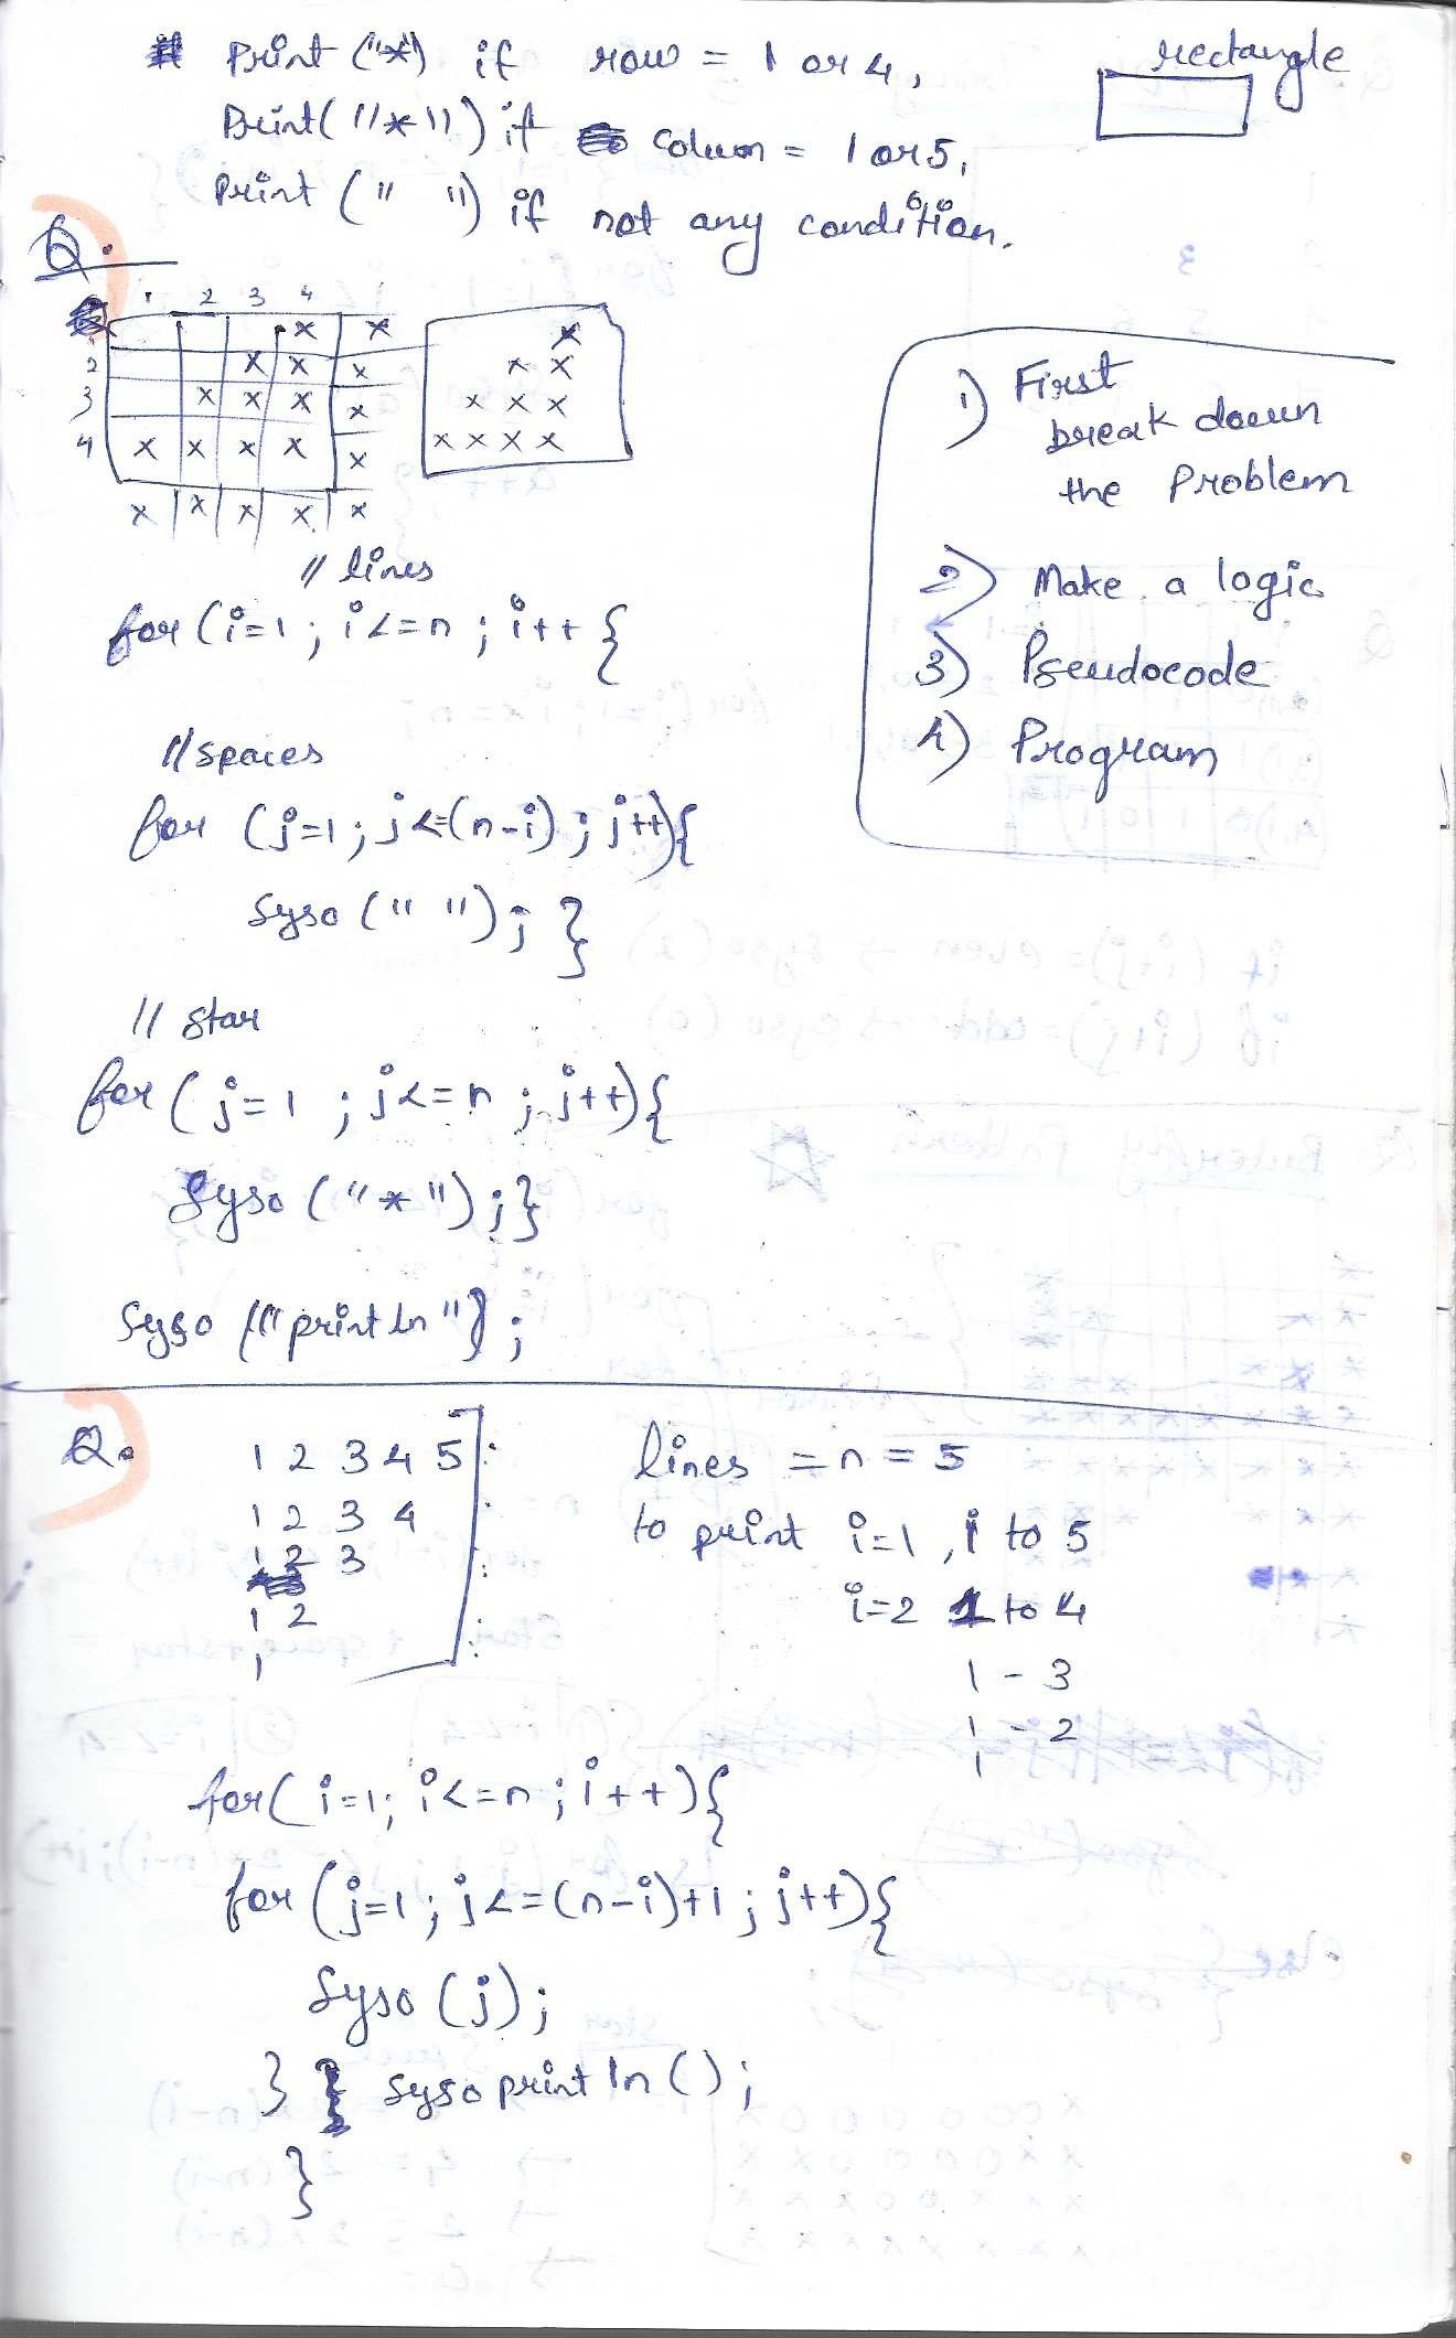 # Print ("*") if row = 1 or 4,
rectangle
Print( "*" ) if column = 1 or 5,
Print (" ") if not any condition.
Q.
1 2 3 4
x x
2 x x x
3 x x x x
4 x x x x x
x x x x x
x
x x
x x x
x x x x
1) First
break down
the Problem
2) Make a logic
3) Pseudocode
4) Program
// lines
for (i=1 ; i<=n ; i++ {
// spaces
for (j=1 ; j<=(n-i) ; j++){
Syso (" ") ; }
// star
for ( j=1 ; j<=n ; j++){
Syso ("*") ; }
Syso ("println") ;
Q. 1 2 3 4 5
1 2 3 4
1 2 3
1 2
1
lines = n = 5
to print i=1 , 1 to 5
i=2 1 to 4
1 - 3
1 - 2
1
for( i=1; i<=n ; i++){
for (j=1 ; j<=(n-i)+1 ; j++){
Syso (j) ;
} syso println () ;
}